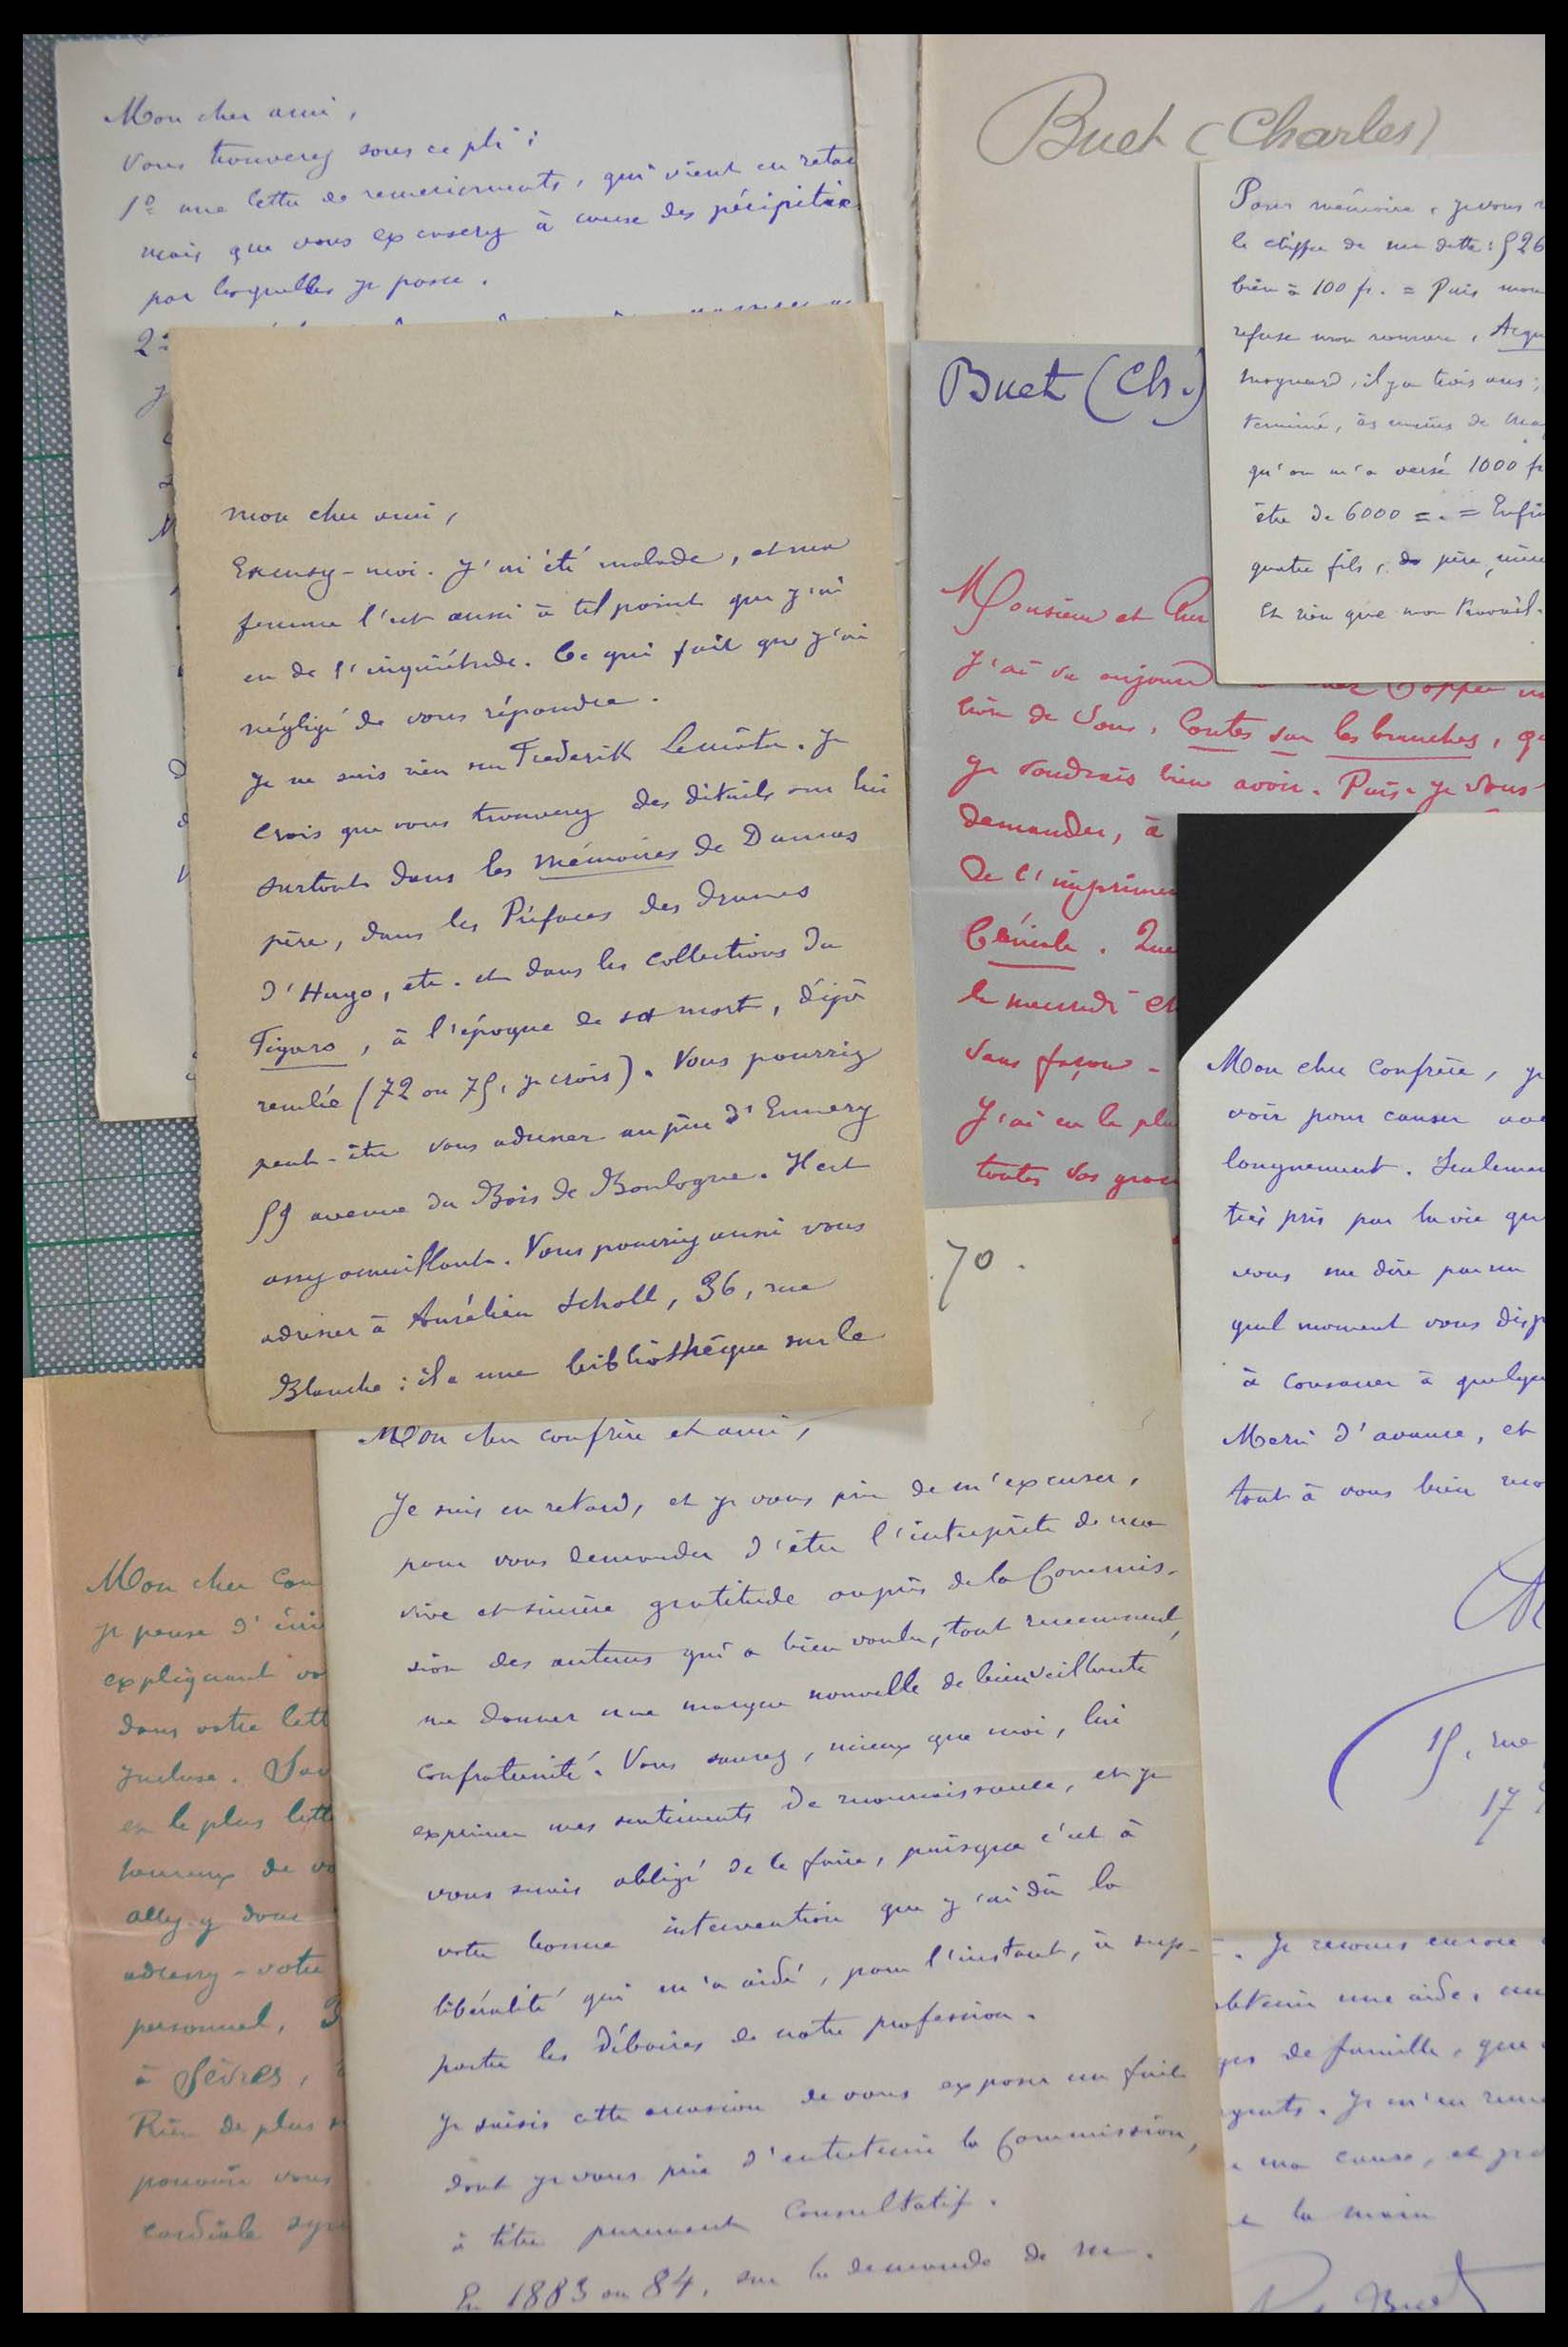 Mon cher ami,
Vous trouverez sous ce pli :
1º une lettre de remerciements, qui vient en retar
mais que vous excuserez à cause des péripéties
par lesquelles je passe.
2º
Buet (Charles)
Pour mémoire, je vous
le chiffre de ma dette : 526
bien à 100 fr. = Puis mon
refuse mon romance, Acqu
il y a trois ans ;
terminé, ès mains de
qu'on m'a versé 1000 fr
être de 6000 =. = Enfin
quatre fils, père, mère
Et rien que mon travail.
mon cher ami,
Excusez-moi. J'ai été malade, et ma
femme l'est aussi à tel point que j'ai
eu de l'inquiétude. Ce qui fait que j'ai
négligé de vous répondre.
Je ne sais rien sur Frederik Lemaître. Je
crois que vous trouverez des détails sur lui
surtout dans les Mémoires de Dumas
père, dans les Préfaces des drames
d'Hugo, etc. et dans les collections du
Figaro, à l'époque de sa mort, déjà
reculée (72 ou 75, je crois). Vous pourriez
peut-être vous adresser au père d'Ennery
59 avenue du Bois de Boulogne. Il est
assez accueillant. Vous pourriez aussi vous
adresser à Aurélien Scholl, 36, rue
Blanche : il a une bibliothèque sur le
Buet (Ch.)
Monsieur et Cher
J'ai vu aujourd Coppée un
livre de Vous, Contes sur les branches, que
je voudrais bien avoir. Puis-je vous
demander, à
de l'imprimer
Que
le mercredi et
Sans façon -
J'ai eu le plu
toutes vos grac
70.
Mon cher Confrère, je
voir pour causer avec
longuement. Seulement
très pris par la vie qu
vous me dire par un
quel moment vous disp
à consacrer à quelque
Merci d'avance, et
tout à vous bien
15, rue
17
Mon cher confrère et ami,
Je suis en retard, et je vous prie de m'excuser,
pour vous demander d'être l'interprète de ma
vive et sincère gratitude auprès de la Commis-
sion des auteurs qui a bien voulu, tout récemment,
me donner une marque nouvelle de bienveillante
confraternité. Vous saurez, mieux que moi, lui
exprimer mes sentiments de reconnaissance, et je
vous serais obligé de le faire, puisque c'est à
votre bonne intervention que j'ai dû la
libéralité qui m'a aidé, pour l'instant, à sup-
porter les déboires de notre profession.
Je saisis cette occasion de vous exposer un fait
dont je vous prie d'entretenir la Commission,
à titre purement consultatif.
En 1883 ou 84, sur la demande de M.
Mon cher Con
je pense d'
expliquant vo
dans votre lett
incluse.
est le plus lett
heureux de vo
allez-y donc
adressez-votre
personnel, 3
à Sèvres,
Rien de plus
pouvoir vous
cordiale sym
. Je recours encore
obtenir une aide,
de famille, que
. Je m'en
ma cause, et je
la main
Ch Buet